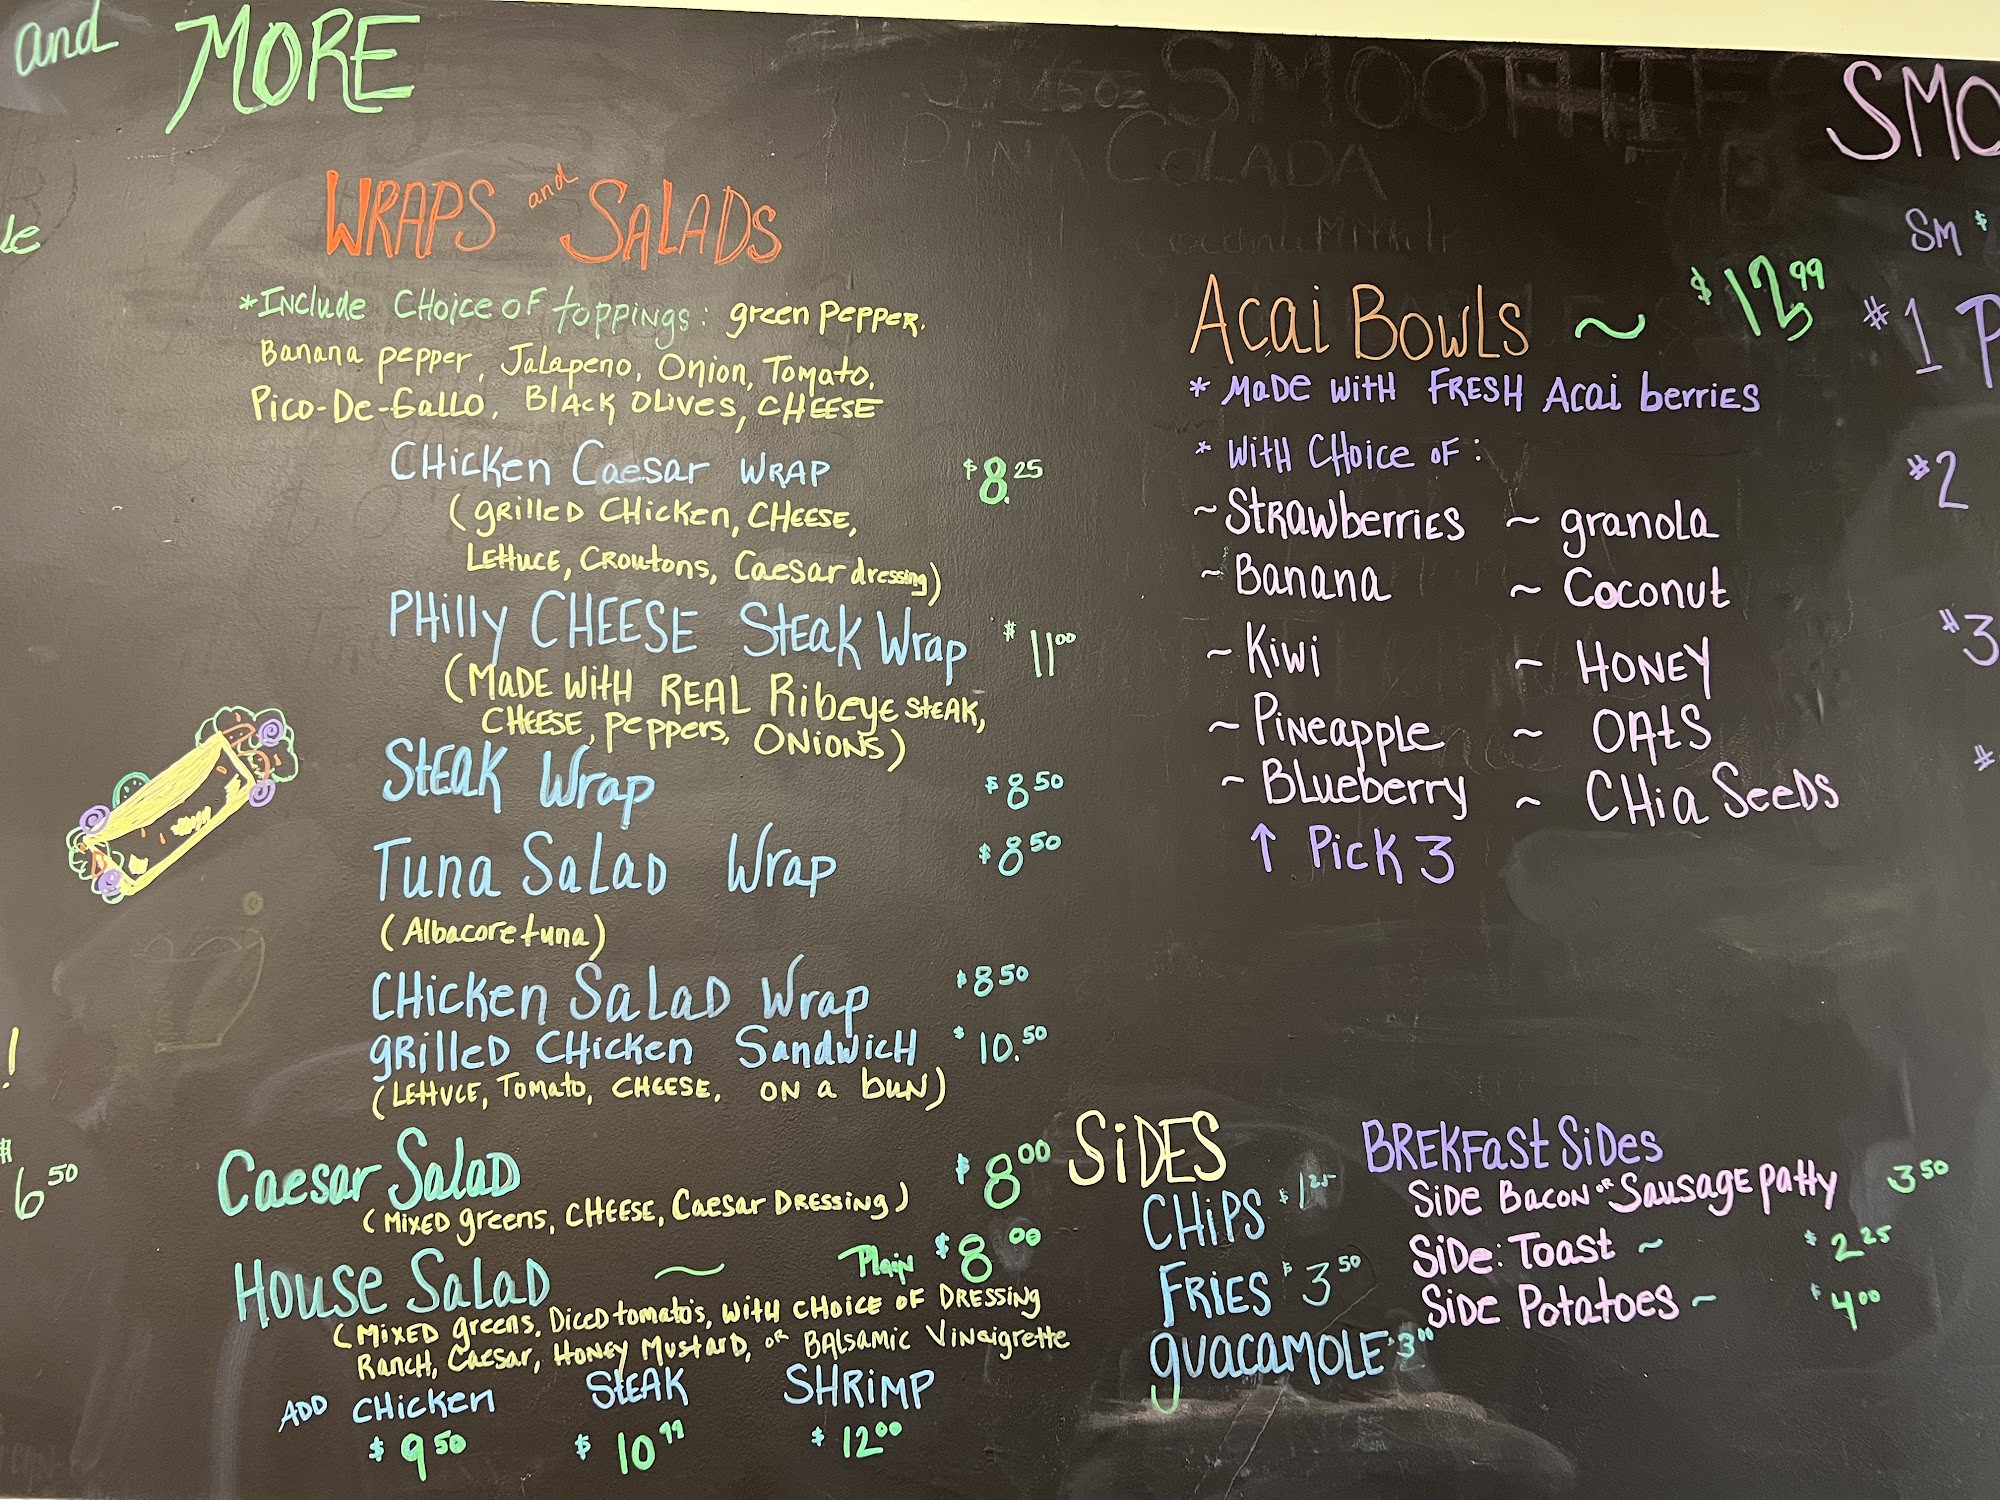 and MORE
WRAPS and SALADS
*INCLUDE CHOICE OF TOPPINGS: green PEPPER.
Banana pepper, Jalapeno, Onion, Tomato,
Pico-De-Gallo, Black Olives, CHEESE
CHicken Caesar WRAP $8.25
(grilled CHicken, CHEESE,
LETTUCE, CROUTONS, Caesar dressing)
PHilly CHEESE Steak Wrap $11.00
(MADE WITH REAL Ribeye STEAK,
CHEESE, Peppers, ONIONS)
STEAK Wrap $8.50
Tuna SALAD Wrap $8.50
(Albacore tuna)
CHicken SALAD Wrap $8.50
GRILLED CHicken SandwicH $10.50
(LETTUCE, TOMATO, CHEESE, ON a bun)
Caesar SALAD $8.00
(MIXED greens, CHEESE, Caesar DRESSING)
House SALAD ~ Plain $8.00
(MIXED greens, Diced tomato's, WITH CHOICE OF DRESSING
RANCH, Caesar, HONEY MUSTARD, OR BALSAMIC Vinaigrette
ADD CHicken STEAK SHRIMP
$9.50 $10.99 $12.00
le
!
$
6.50
Acai Bowls ~
* MADE WITH FRESH Acai berries
* WITH CHOICE OF:
~Strawberries ~ granola
~Banana ~ Coconut
~Kiwi ~ HONEY
~Pineapple ~ OATS
~Blueberry ~ CHia SEEDS
↑ Pick 3
SIDES
CHIPS $1.25
FRIES $3.50
guacamole 3.00
BREKFAST SIDES
SIDE BACON OR SAUSAGE PATTY 3.50
SIDE: TOAST ~ $2.25
SIDE Potatoes ~ $4.00
SMO
SM $
#1 P
#2
#3
#
SMOOTHIE
PINA COLADA